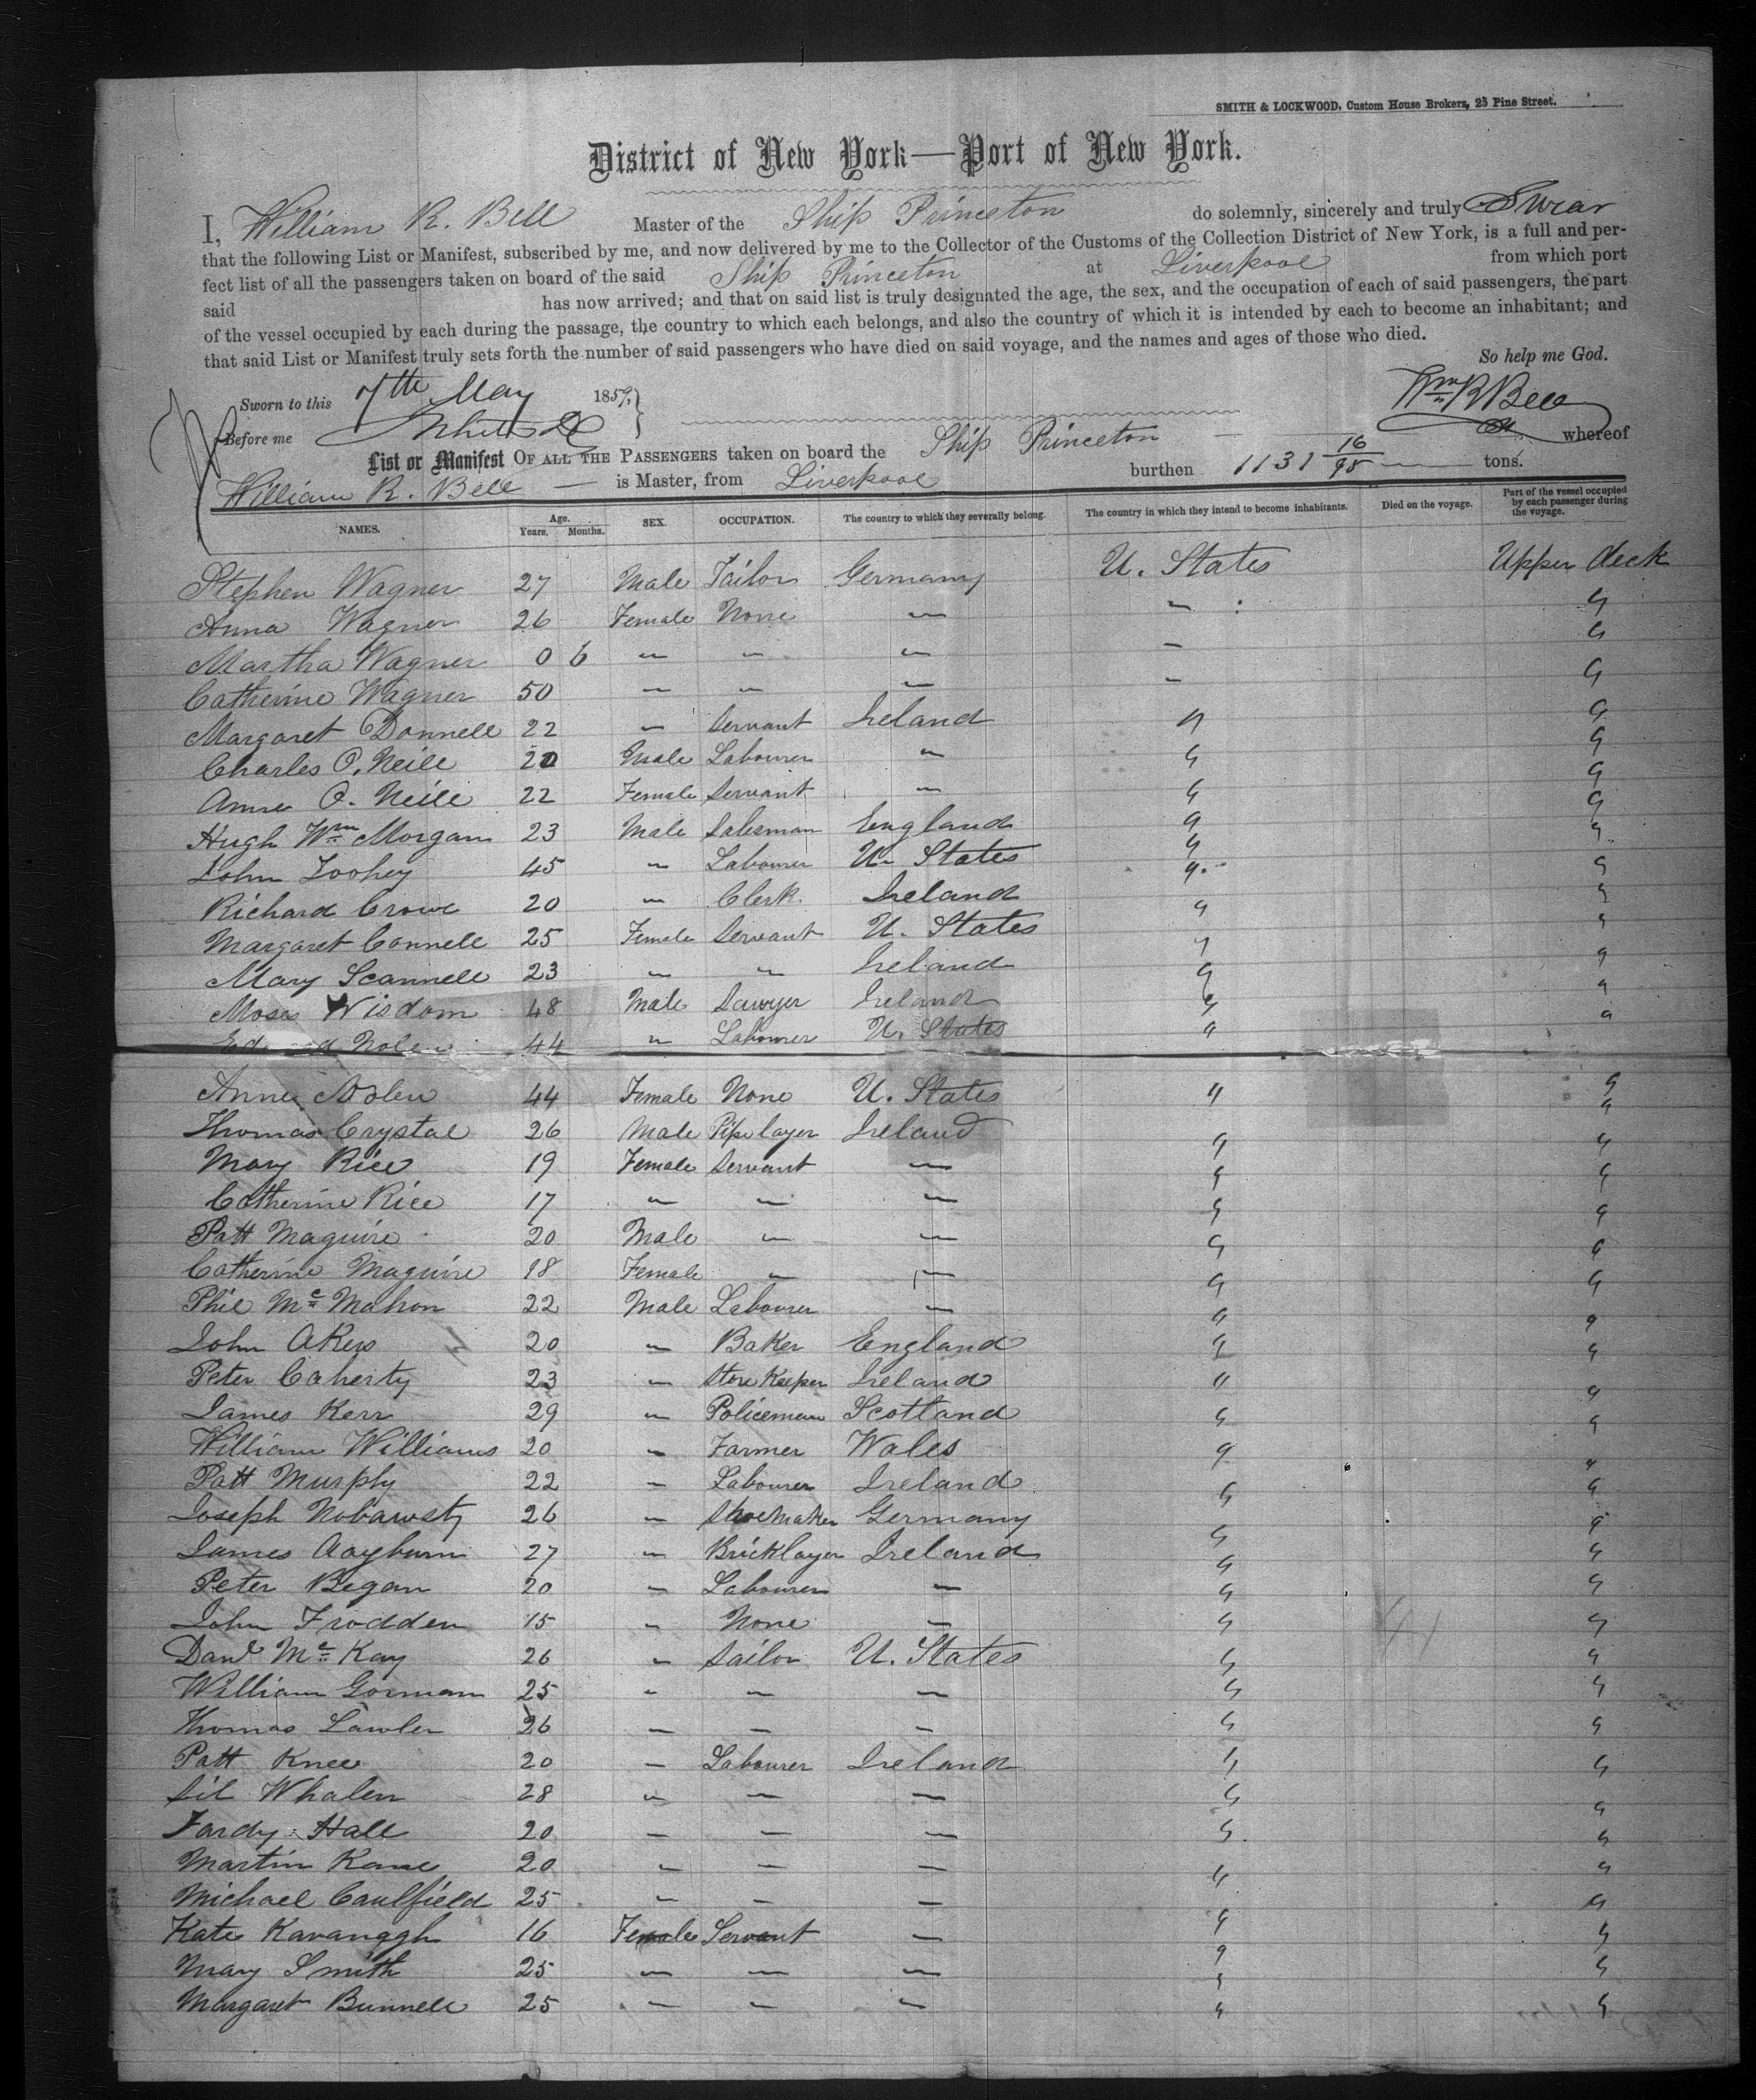 SMITH & LOCKWOOD, Custom House Brokers, 25 Pine Street.
District of New York—Port of New York.
I, William R. Bell Master of the Ship Princeton do solemnly, sincerely and truly Swear
that the following List or Manifest, subscribed by me, and now delivered by me to the Collector of the Customs of the Collection District of New York, is a full and per-
fect list of all the passengers taken on board of the said Ship Princeton at Liverpool from which port
said has now arrived; and that on said list is truly designated the age, the sex, and the occupation of each of said passengers, the part
of the vessel occupied by each during the passage, the country to which each belongs, and also the country of which it is intended by each to become an inhabitant; and
that said List or Manifest truly sets forth the number of said passengers who have died on said voyage, and the names and ages of those who died.
So help me God.
Sworn to this 7th May 1859,
Wm R Bell
Before me
List or Manifest OF ALL THE PASSENGERS taken on board the Ship Princeton — whereof
William R. Bell — is Master, from Liverpool burthen 1131 16/95 — tons.
NAMES. Age. Years. Months. SEX. OCCUPATION. The country to which they severally belong. The country in which they intend to become inhabitants. Died on the voyage. Part of the vessel occupied by each passenger during the voyage.
Stephen Wagner 27 Male Tailor Germany U. States Upper deck
Anna Wagner 26 Female None " " "
Martha Wagner 0 6 " " " " "
Catherine Wagner 50 " " " " "
Margaret Donnell 22 " Servant Ireland " "
Charles O. Neill 20 Male Labourer " " "
Anne O. Neill 22 Female Servant " " "
Hugh Wm Morgan 23 Male Salesman England " "
John Toohey 45 " Labourer U. States " "
Richard Crowe 20 " Clerk Ireland " "
Margaret Connell 25 Female Servant U. States " "
Mary Scannell 23 " " Ireland " "
Moses Wisdom 48 Male Sawyer Ireland " "
Nolen 44 " Labourer U. States " "
Anne Nolen 44 Female None U. States " "
Thomas Crystal 26 Male Pipe layer Ireland " "
Mary Rice 19 Female Servant " " "
Catherine Rice 17 " " " " "
Patt Maguire 20 Male " " " "
Catherine Maguire 18 Female " " " "
Phil Mc Mahon 22 Male Labourer " " "
John Akers 20 " Baker England " "
Peter Caherty 23 " Store Keeper Ireland " "
James Kerr 29 " Policeman Scotland " "
William Williams 20 " Farmer Wales " "
Patt Murphy 22 " Labourer Ireland " "
Joseph 26 " Shoemaker Germany " "
James 27 " Bricklayer Ireland " "
Peter Began 20 " Labourer " " "
John Frodden 15 " None " " "
Danl Mc Kay 26 " Sailor U. States " "
William Gorman 25 " " " " "
Thomas Lawler 26 " " " " "
Patt Knee 20 " Labourer Ireland " "
Sil Whalen 28 " " " " "
Fardy Hall 20 " " " " "
Martin Kane 20 " " " " "
Michael Caulfield 25 " " " " "
Kate Kavanagh 16 Female Servant " " "
Mary Smith 25 " " " " "
Margaret Bunnell 25 " " " " "